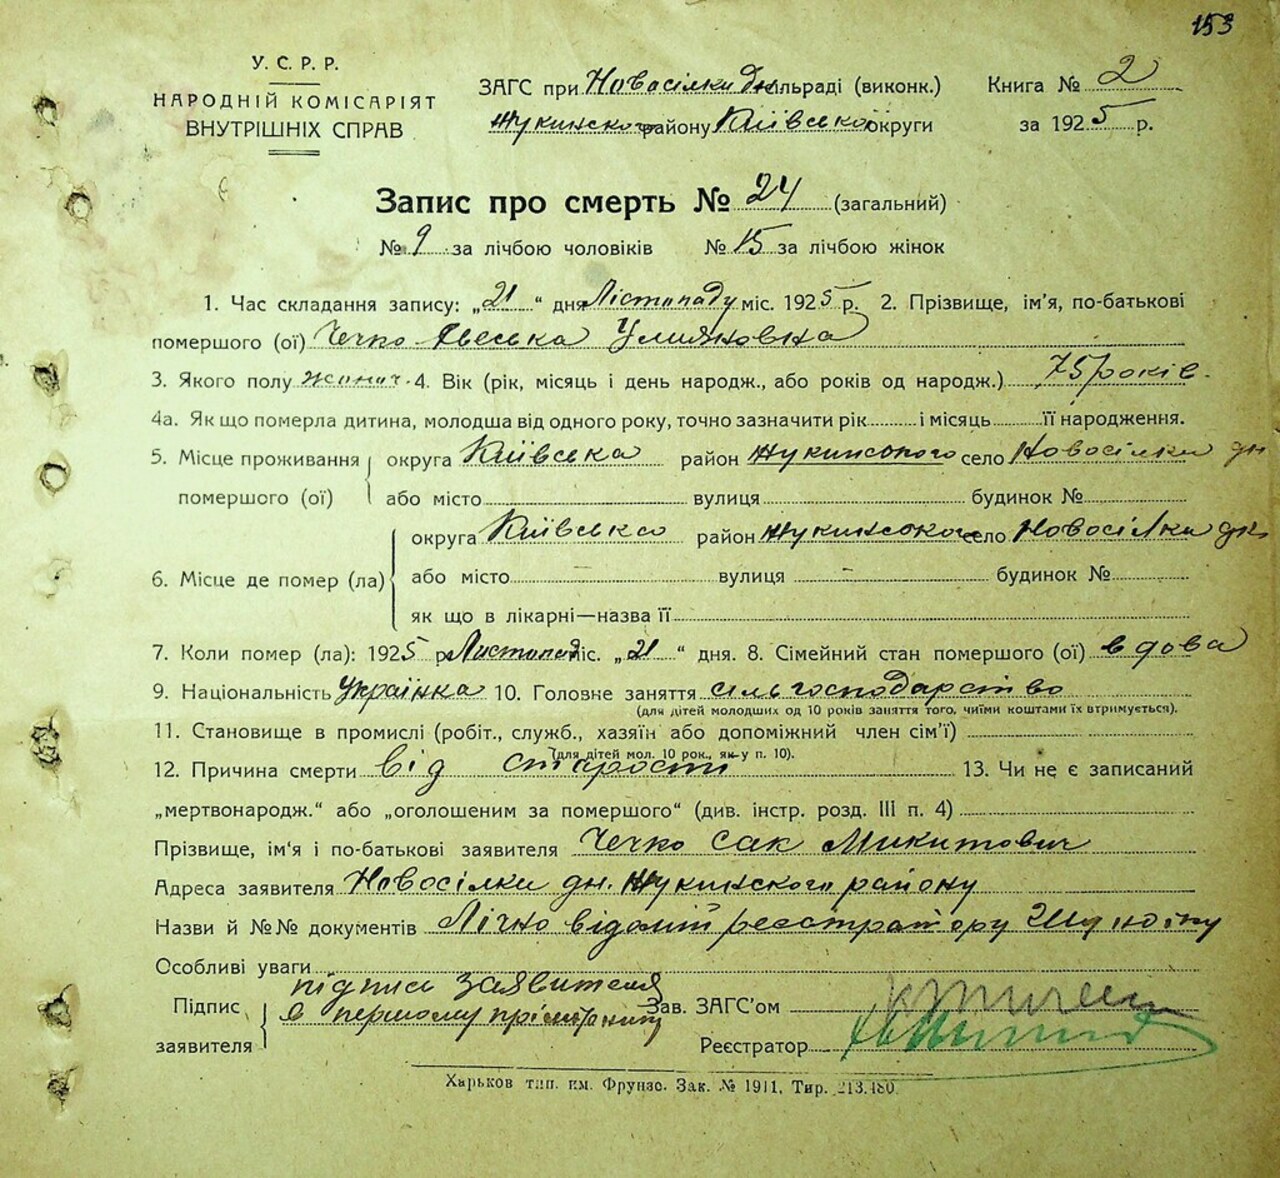 153
У. С. Р. Р.
НАРОДНІЙ КОМІСАРІЯТ
ВНУТРІШНІХ СПРАВ
ЗАГС при Новосілки дн сільраді (виконк.)
Жукинского району Київської округи
Книга № 2
за 1925 р.
Запис про смерть № 24 (загальний)
№ 9 за лічбою чоловіків № 15 за лічбою жінок
1. Час складання запису: „21“ дня Лістопаду міс. 1925 р. 2. Прізвище, ім'я, по-батькові
помершого (ої) Чечко Улияновна
3. Якого полу жіноч. 4. Вік (рік, місяць і день народж., або років од народж.) 75 років.
4а. Як що померла дитина, молодша від одного року, точно зазначити рік і місяць її народження.
5. Місце проживання помершого (ої) округа Київська район Жукинського село Новосілки дн
або місто вулиця будинок №
6. Місце де помер (ла) округа Київська район Жукинського село Новосілки дн.
або місто вулиця будинок №
як що в лікарні—назва її
7. Коли помер (ла): 1925 р. Листопад міс. „21“ дня. 8. Сімейний стан помершого (ої) вдова
9. Національність Українка 10. Головне заняття сільгосподарство
(для дітей молодших од 10 років заняття того, чиїми коштами їх втримується).
11. Становище в промислі (робіт., служб., хазяїн або допоміжний член сім'ї)
(для дітей мол. 10 рок., як у п. 10).
12. Причина смерти від старости 13. Чи не є записаний
„мертвонародж.“ або „оголошеним за помершого“ (див. інстр. розд. III п. 4)
Прізвище, ім'я і по-батькові заявителя Чечко Сак Микитович
Адреса заявителя Новосілки дн. Жукинского району
Назви й №№ документів Лічно відомий реєстратору
Особливі уваги
Підпис заявителя підпис заявителя
в першому прімірнику
Зав. ЗАГС'ом
Реєстратор
Харьков тип. им. Фрунзе. Зак. № 1911, Тир. 213.480.